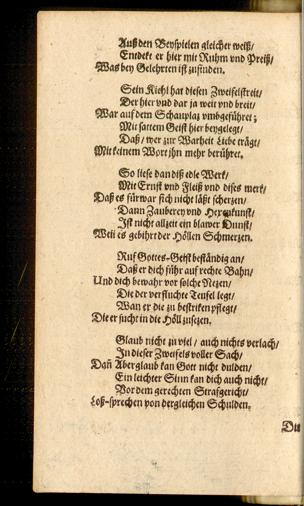 Auß den Beyspielen gleicher weiß/
Entdekt er hier mit Ruhm vnd Preiß/
Was bey Gelehrten ist zufinden.
Sein Kiehl hat diesen Zweifelstreit/
Der hier vnd dar ja weit vnd breit/
War auf dem Schauplaz vmbgeführet;
Mit sattem Geist hier beygelegt/
Daß/ wer zur Warheit Liebe trägt/
Mit keinem Wort jhn mehr berühret.
So liese dan diß edle Werk/
Mit Ernst vnd Fleiß vnd dises merk/
Daß es fürwar sich nicht läßt scherzen/
Dann Zauberey vnd Hexenkunst/
Ist nicht allzeit ein blawer Dunst/
Weil es gebihrt der Höllen Schmerzen.
Ruf Gottes-Geist beständig an/
Daß er dich führ auf rechte Bahn/
Und dich bewahr vor solche Nezen/
Die der verfluchte Teufel legt/
Wan er die zu bestriken pflegt/
Die er sucht in die Höll zusezen.
Glaub nicht zu viel / auch nichts verlach/
In dieser Zweifels voller Sach/
Dañ Aberglaub kan Gott nicht dulden/
Ein leichter Sinn kan dich auch nicht/
Vor dem gerechten Strafgericht/
Loß-sprechen von dergleichen Schulden.
Du